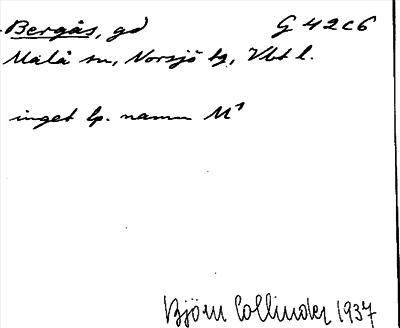 Bergås, gd G 42c6
Malå sn, Norsjö tg, Vbt l.
inget lp. namn M¹
Björn Collinder 1937